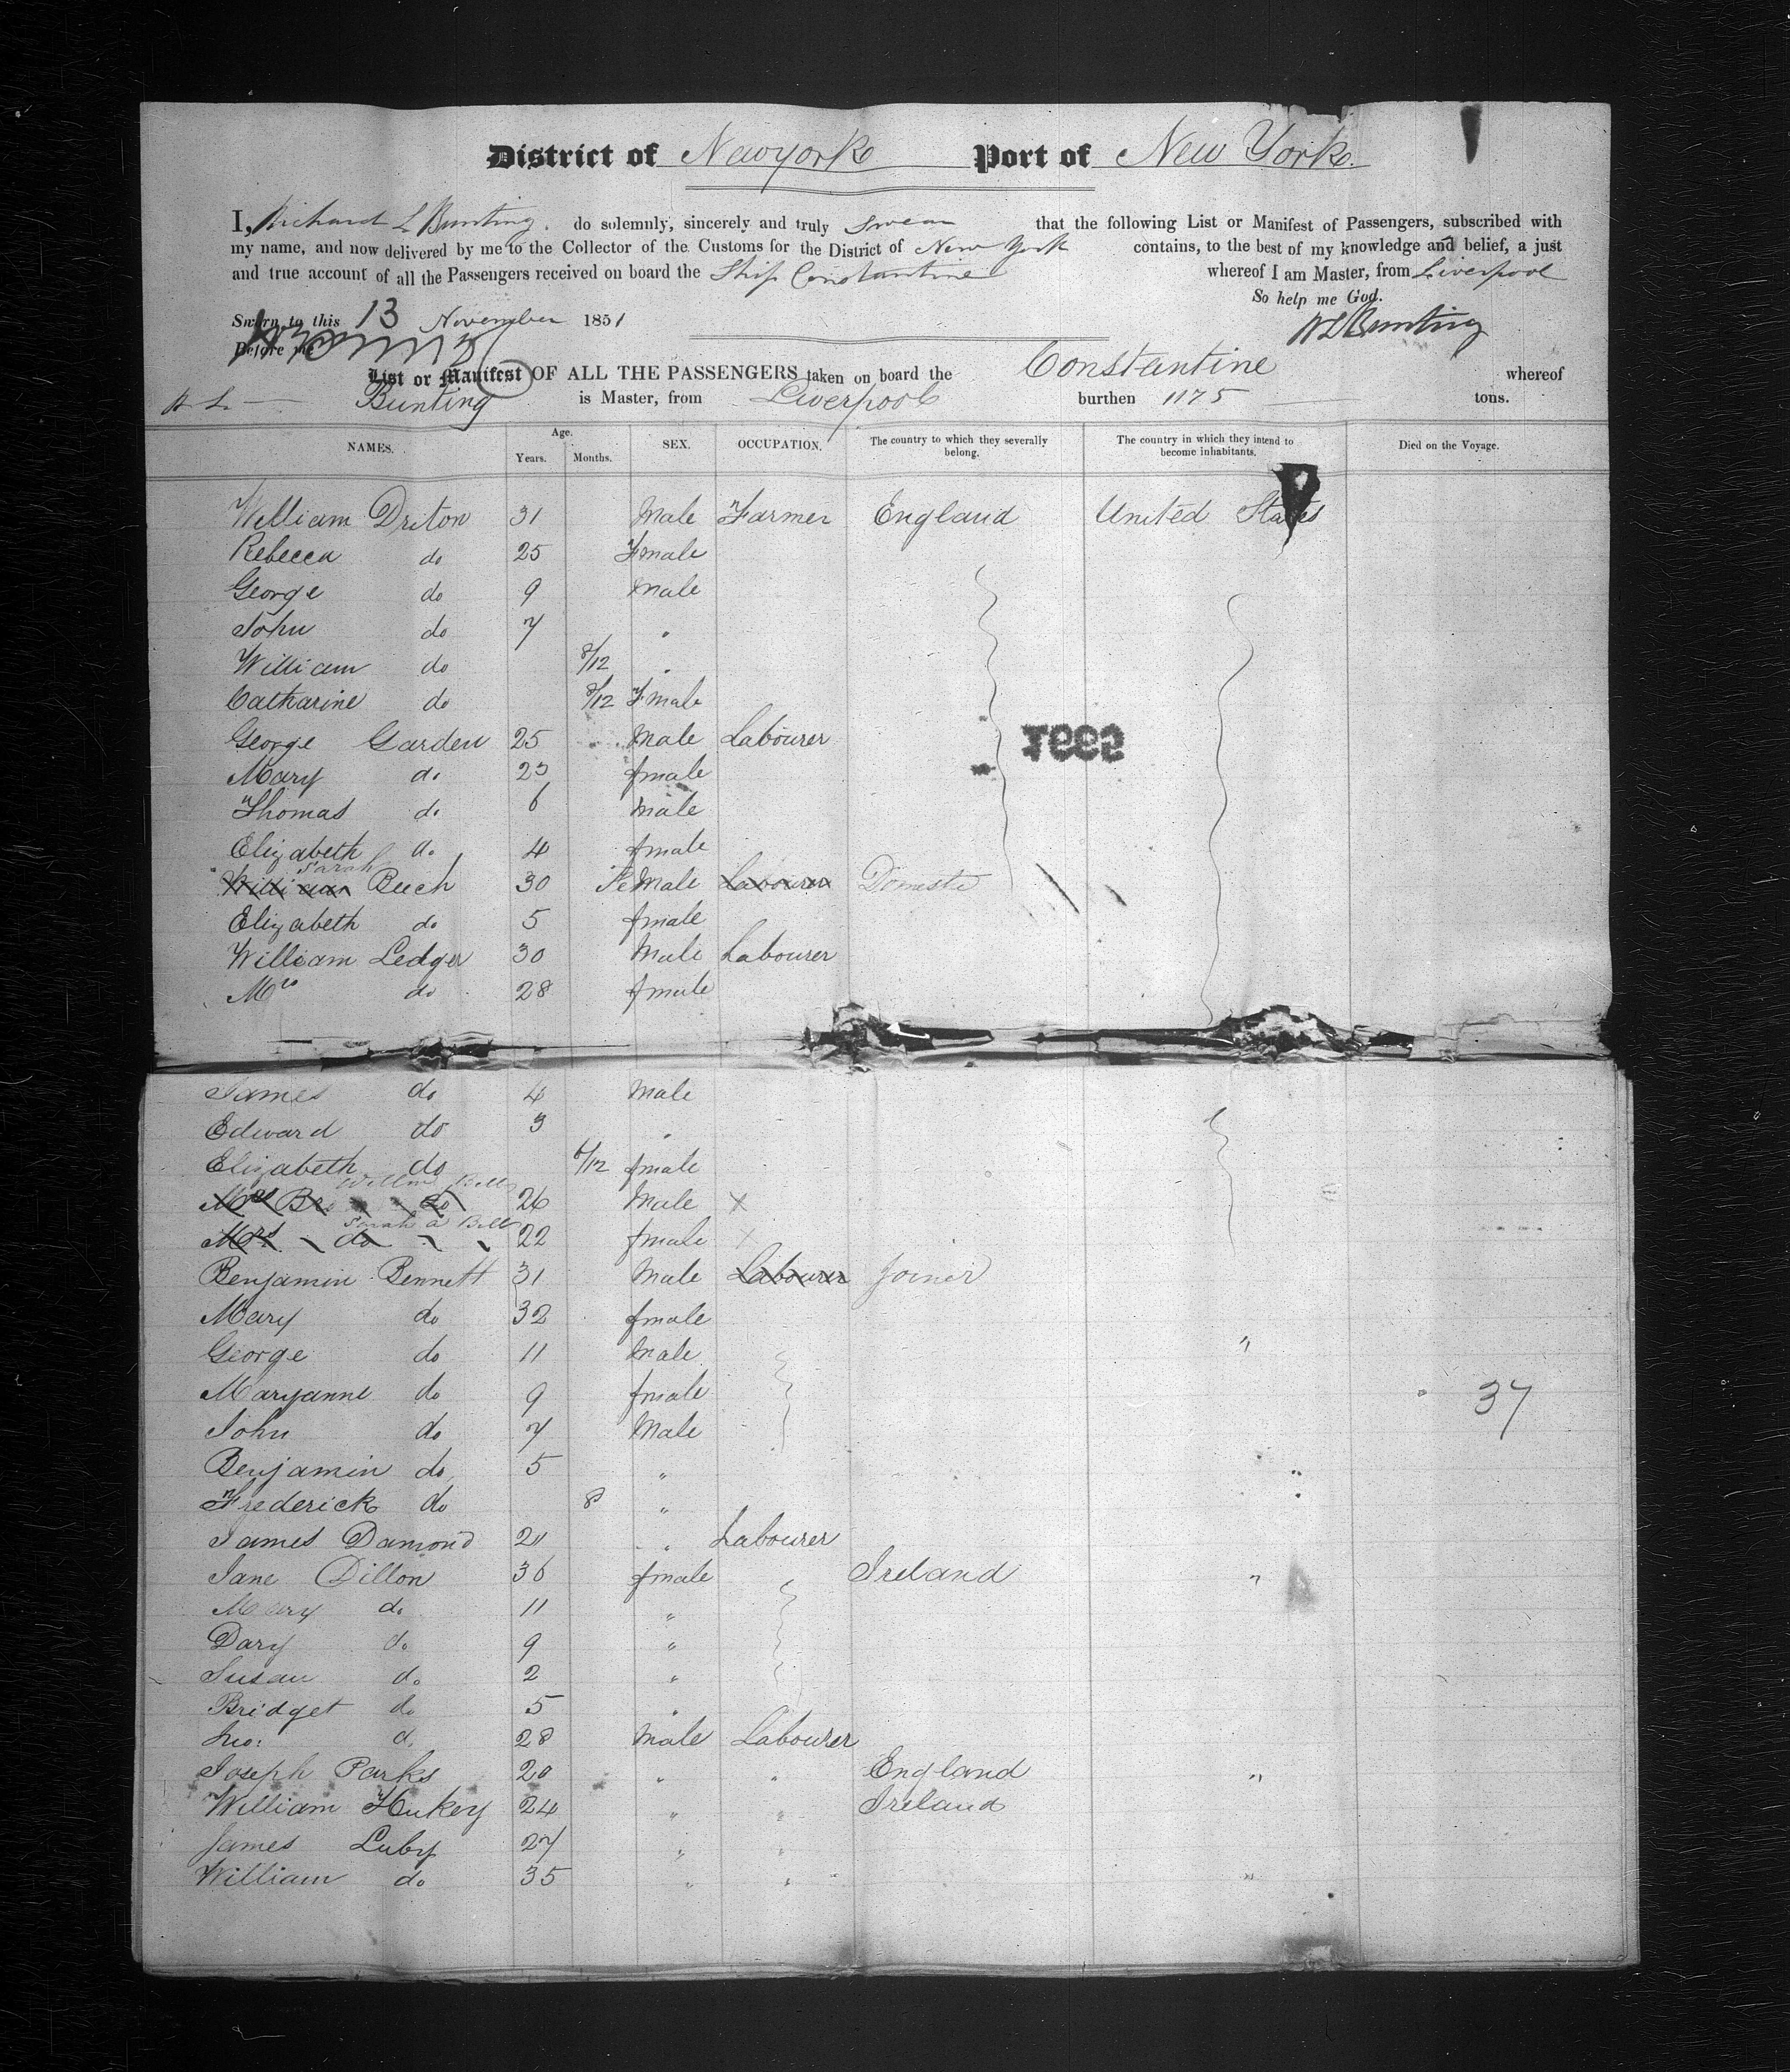 District of Newyork Port of New York.
I, Richard L Bunting. do solemnly, sincerely and truly swear that the following List or Manifest of Passengers, subscribed with
my name, and now delivered by me to the Collector of the Customs for the District of New York contains, to the best of my knowledge and belief, a just
and true account of all the Passengers received on board the Ship Constantine whereof I am Master, from Liverpool
So help me God.
Sworn to this 13 November 1851
R L Bunting
Before me
List or Manifest OF ALL THE PASSENGERS taken on board the Constantine whereof
R L — Bunting is Master, from Liverpool burthen 1175 tons.
NAMES. Age. Years. Months. SEX. OCCUPATION. The country to which they severally belong. The country in which they intend to become inhabitants. Died on the Voyage.
William Driton 31 Male Farmer England United States
Rebecca do 25 Fmale
George do 9 Male
John do 7 "
William do 8/12 "
Catharine do 8/12 Fmale
George Garden 25 Male Labourer
Mary do 23 fmale
Thomas do 6 Male
Elizabeth do 4 fmale
William Sarah Buch 30 FeMale Labourer Domestic
Elizabeth do 5 fmale
William Ledger 30 Male Labourer
Mrs do 28 fmale
James do 4 Male
Edward do 3 "
Elizabeth do 6/12 fmale
26 Male x
Mrs do Sarah a Bell 22 fmale x
Benjamin Bennett 31 Male Labourer Joiner
Mary do 32 fmale
George do 11 Male "
Maryanne do 9 fmale 37
John do 7 Male
Benjamin do 5 "
Frederick do 8 "
James Damond 21 " Labourer
Jane Dillon 36 fmale Ireland "
Mary do 11 "
Dary do 9 "
Susan do 2 "
Bridget do 5 "
Jno: do 28 Male Labourer
Joseph Parks 20 " " England "
William Hukey 24 " " Ireland
James Luby 27 " "
William do 35 " " "